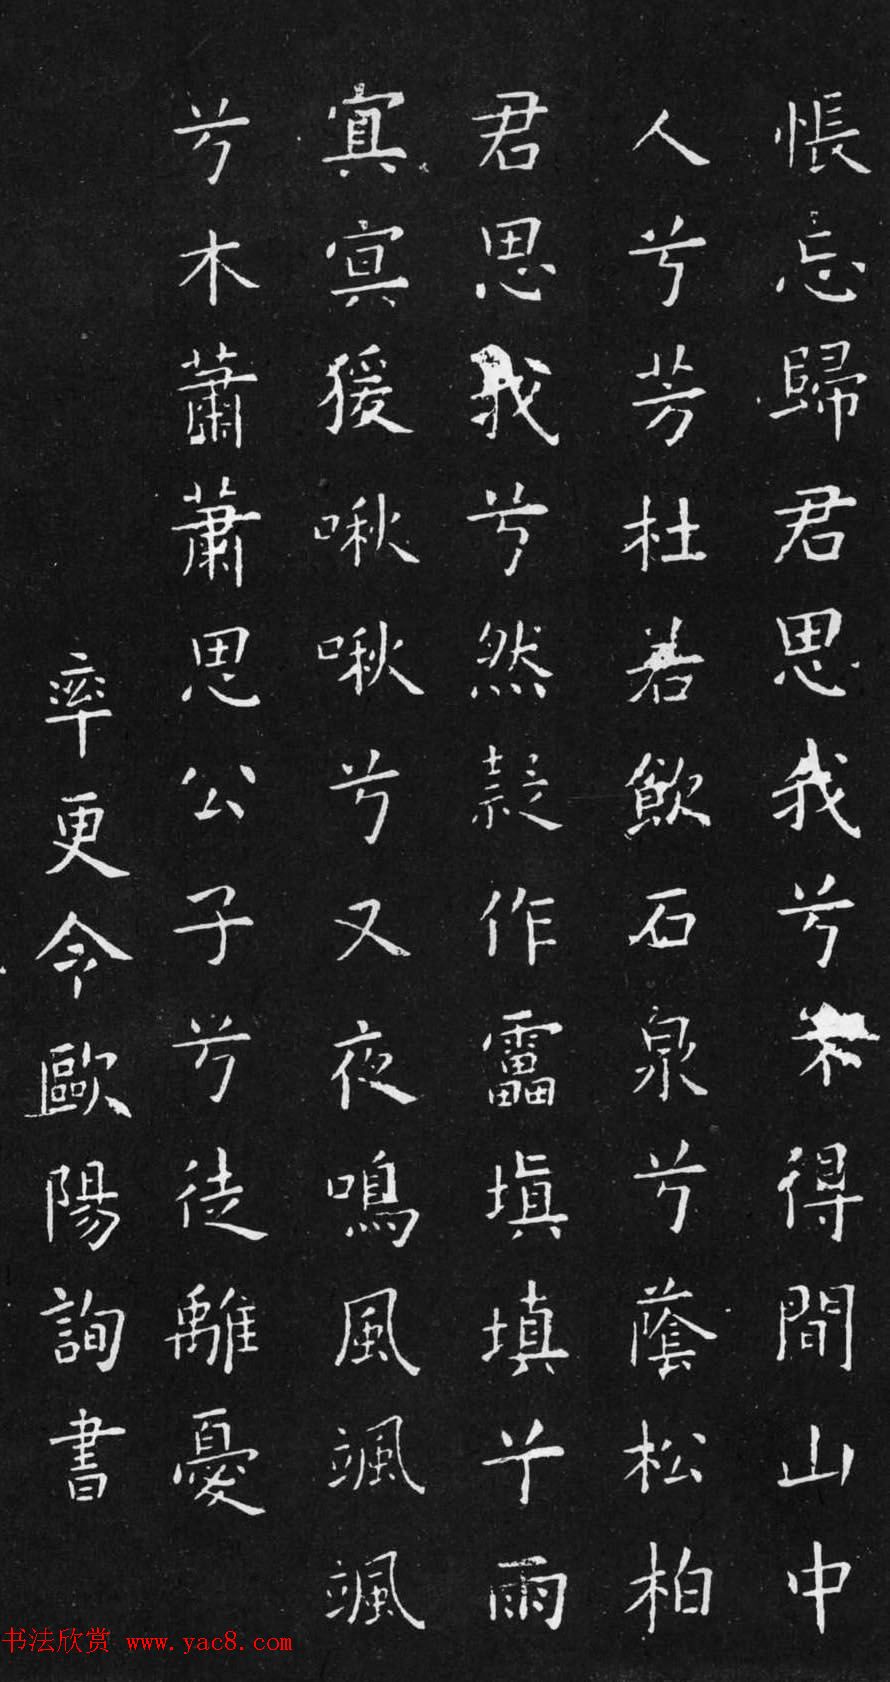 悵忘歸君思我兮不得間山中
人兮芳杜若飲石泉兮蔭松柏
君思我兮然疑作靁填填兮雨
冥冥猨啾啾兮又夜鳴風颯颯
兮木蕭蕭思公子兮徒離憂
率更令歐陽詢書
书法欣赏 www.yac8.com